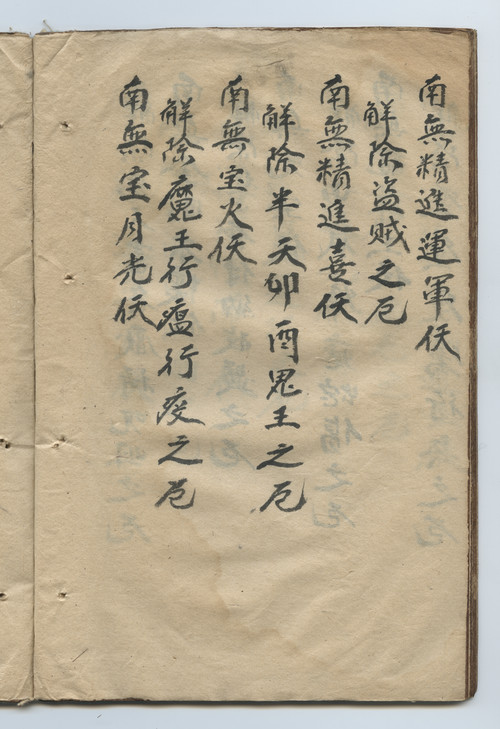 南無精進運軍仸
解除盜賊之厄
南無精進喜仸
解除半天卯酉鬼王之厄
南無宝火仸
解除魔王行瘟行疫之厄
南無宝月光仸